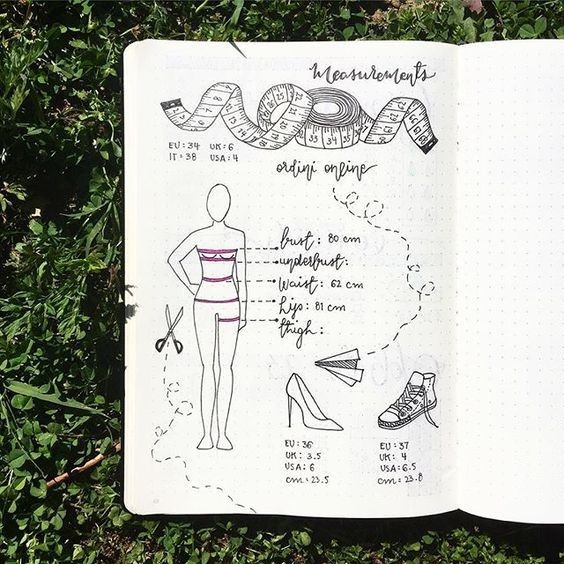 Measurements
EU: 34 UK: 6
IT: 38 USA: 4
ordini online
bust: 80 cm
underbust:
waist: 62 cm
hips: 81 cm
thigh:
EU: 36
UK: 3.5
USA: 6
cm: 23.5
EU: 37
UK: 4
USA: 6.5
cm: 23.8